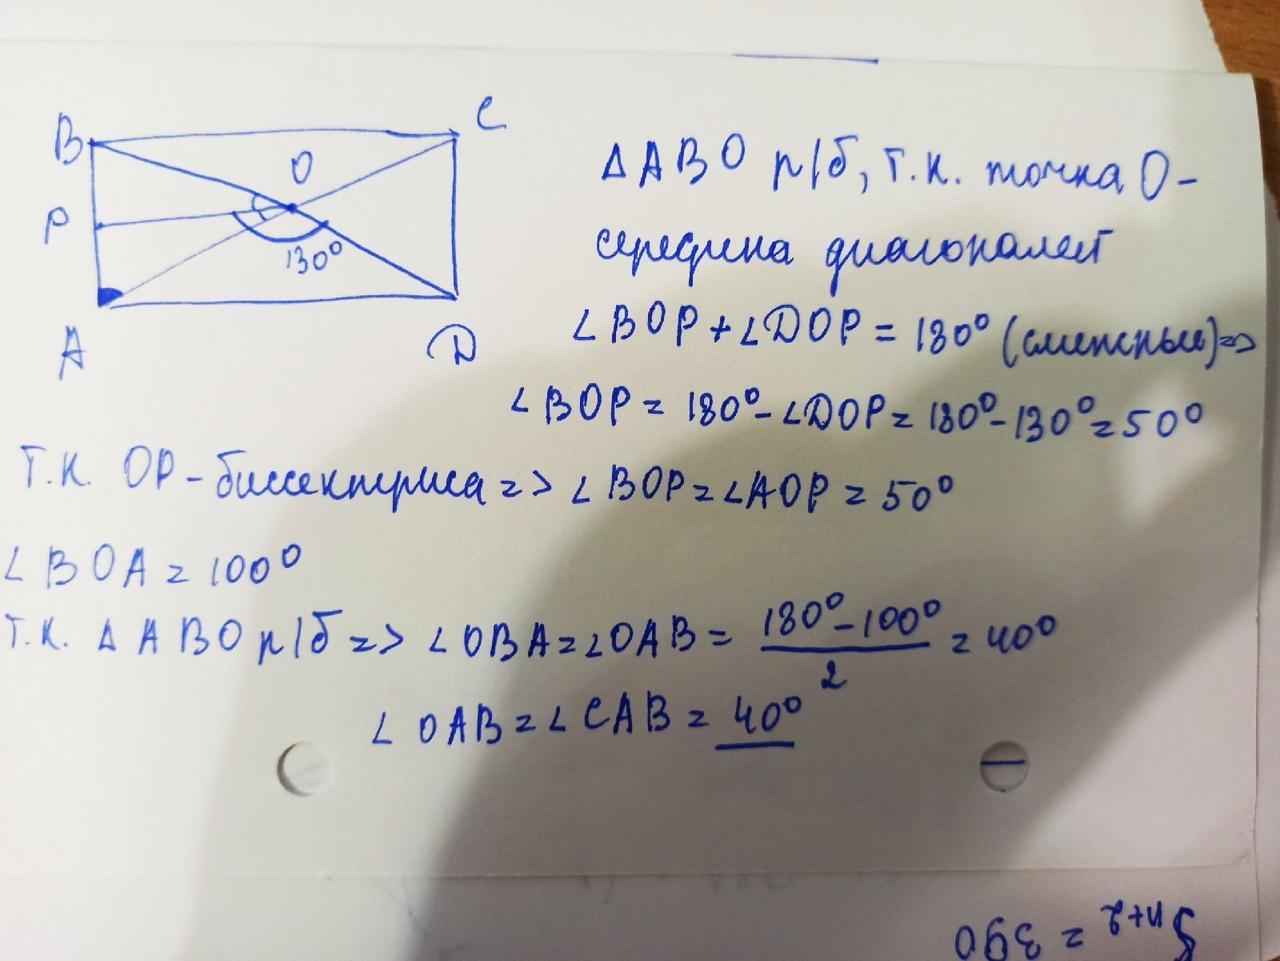 B
C
O
P
130°
A
D
Δ ABO р/б, т.к. точка O-
середина диагоналей
∠BOP + ∠DOP = 180° (смежные) =>
∠BOP = 180° - ∠DOP = 180° - 130° = 50°
Т.К. OP - биссектриса => ∠BOP = ∠AOP = 50°
∠BOA = 100°
Т.К. Δ ABO р/б => ∠OBA = ∠OAB = (180° - 100°)/2 = 40°
∠OAB = ∠CAB = 40°
5ⁿ⁺² = 390